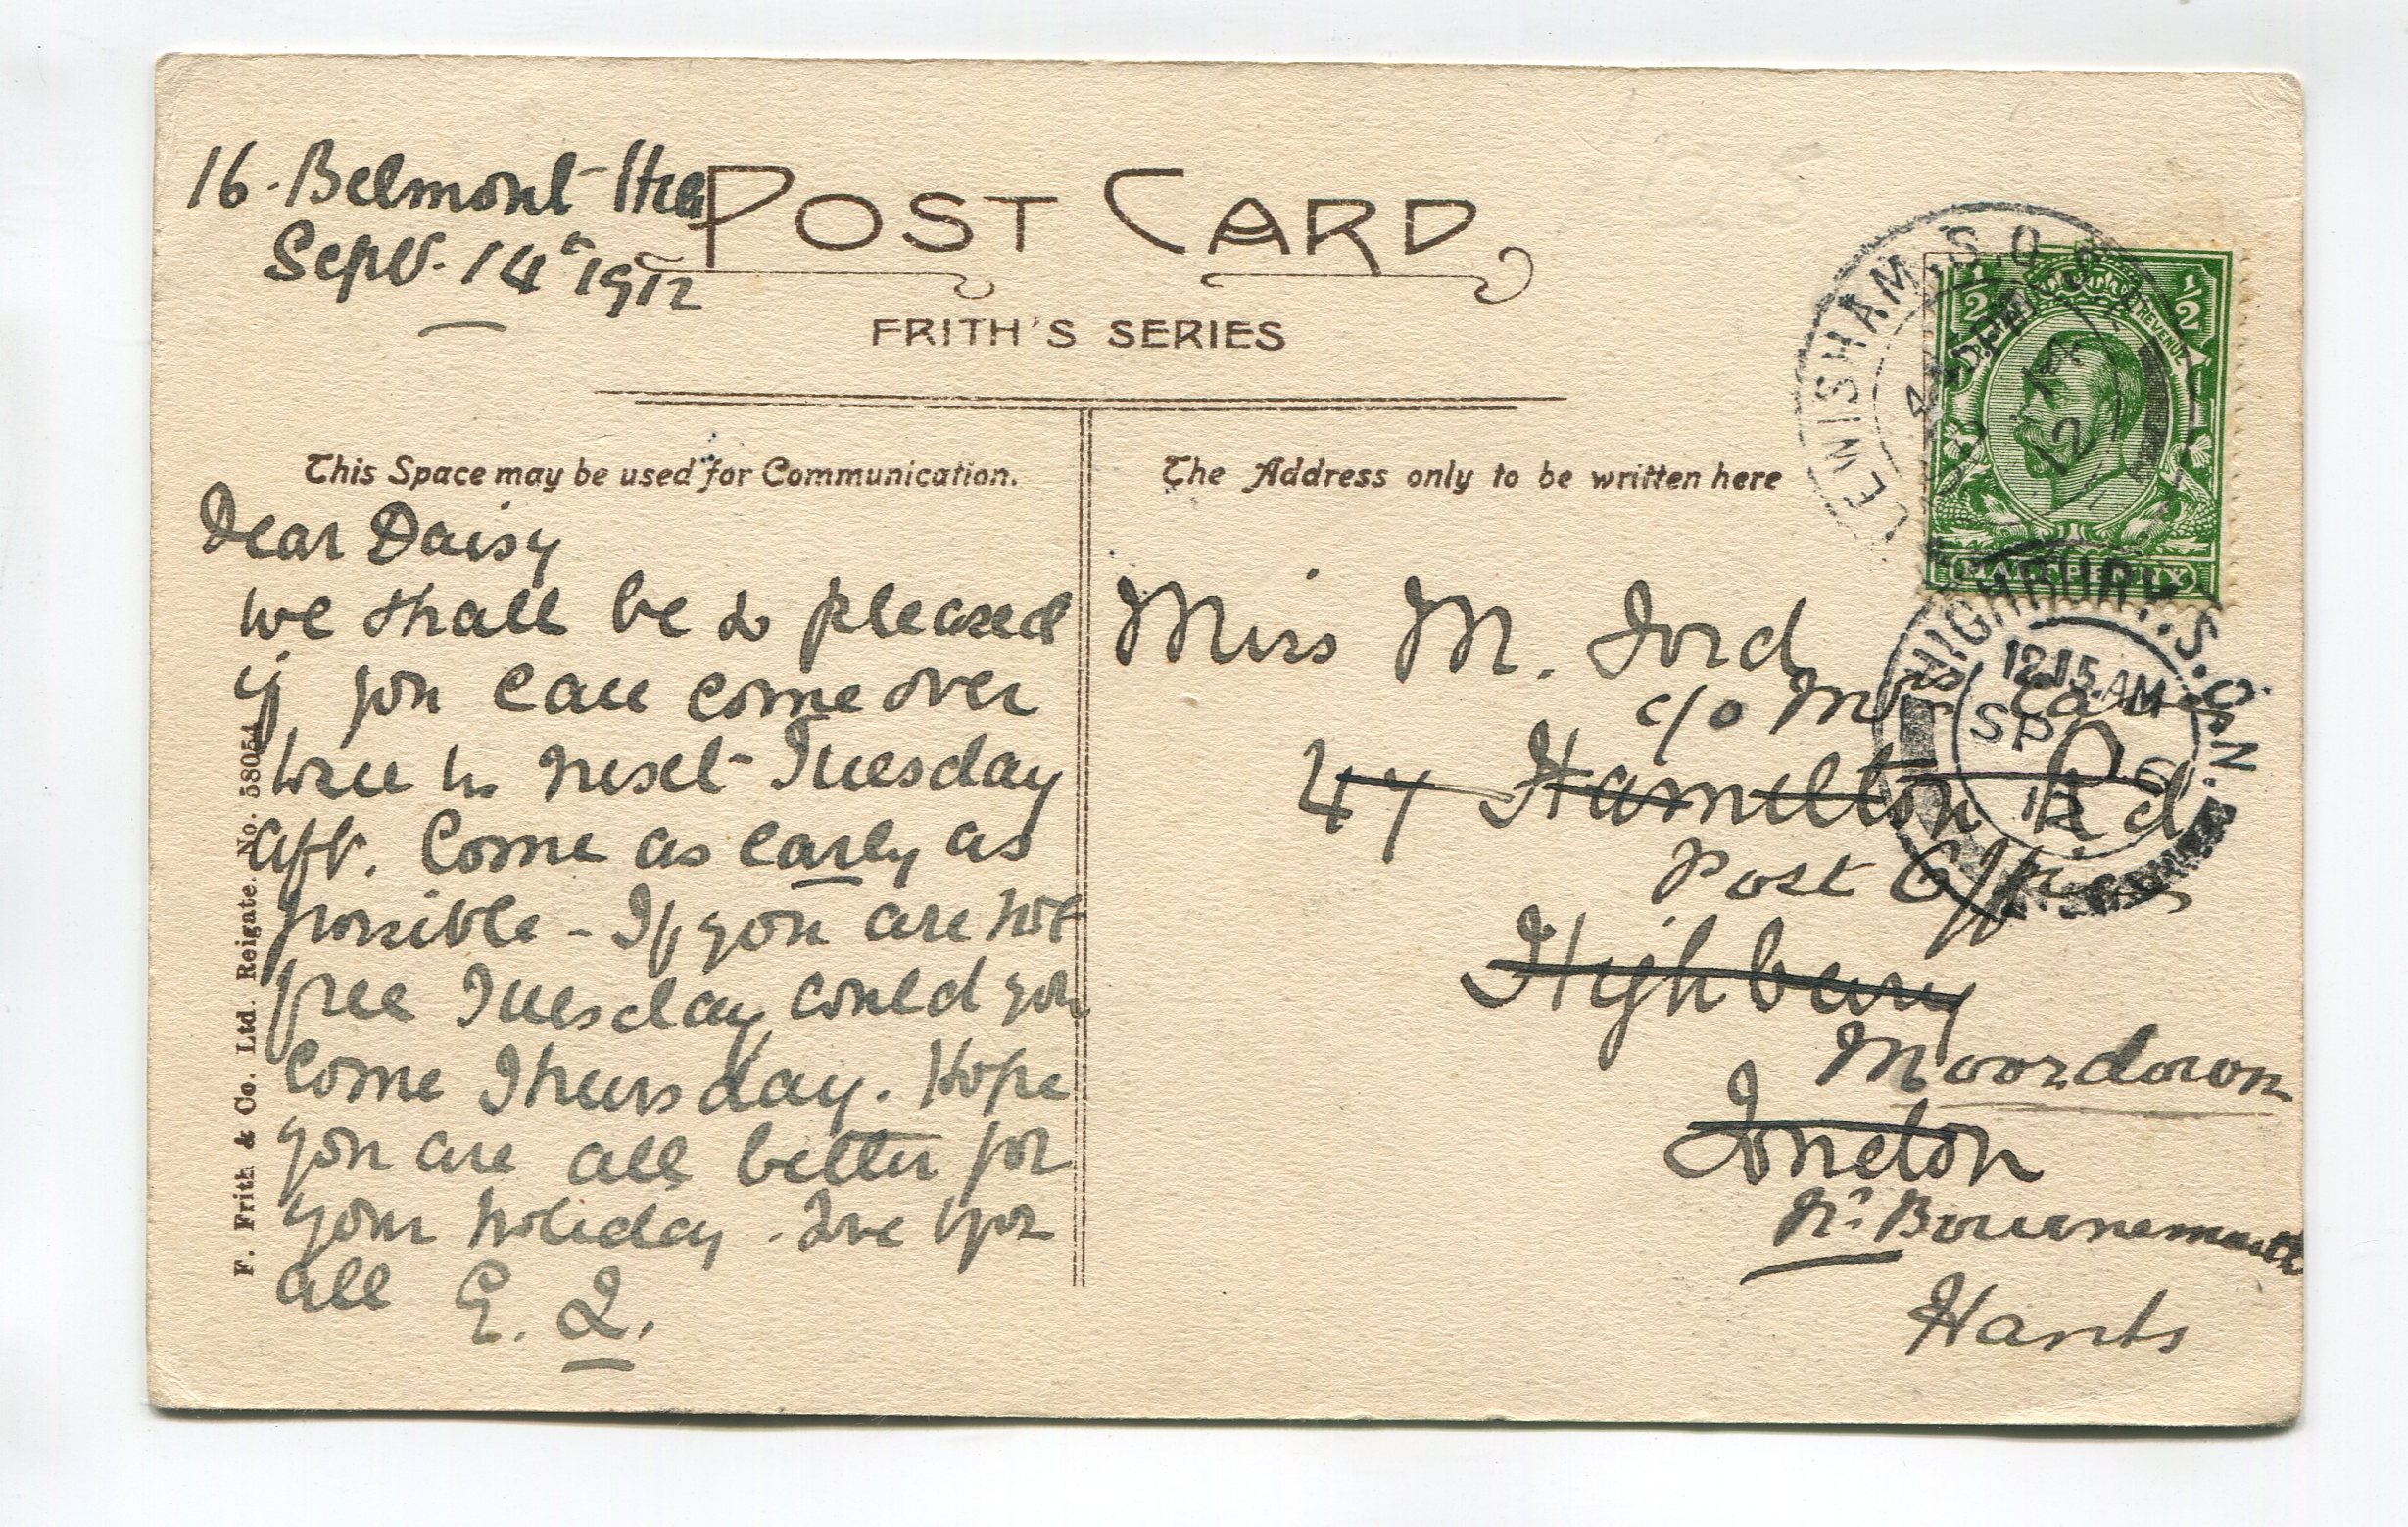 16. Belmont Hill
Sept. 14th 1912
POST CARD
FRITH'S SERIES
This Space may be used for Communication.
The Address only to be written here
Dear Daisy
We shall be so pleased
if you can come over
here in next Tuesday
aft. Come as early as
possible - If you are not
free Tuesday could you
come Thursday. Hope
you are all better for
your holiday. Love to you
all E. L.
F. Frith & Co. Ltd. Reigate. No. 58054
Miss M. Ford
c/o Mrs
47 Hamilton Rd
Post Office
Highbury
Moordown
London
Nr Bournemouth
Hants
LEWISHAM. S.O. S.E.
14
12
½ ½
POSTAGE REVENUE
HALFPENNY
HIGHBURY. S.O. N.
12.15.AM
SP 16
12